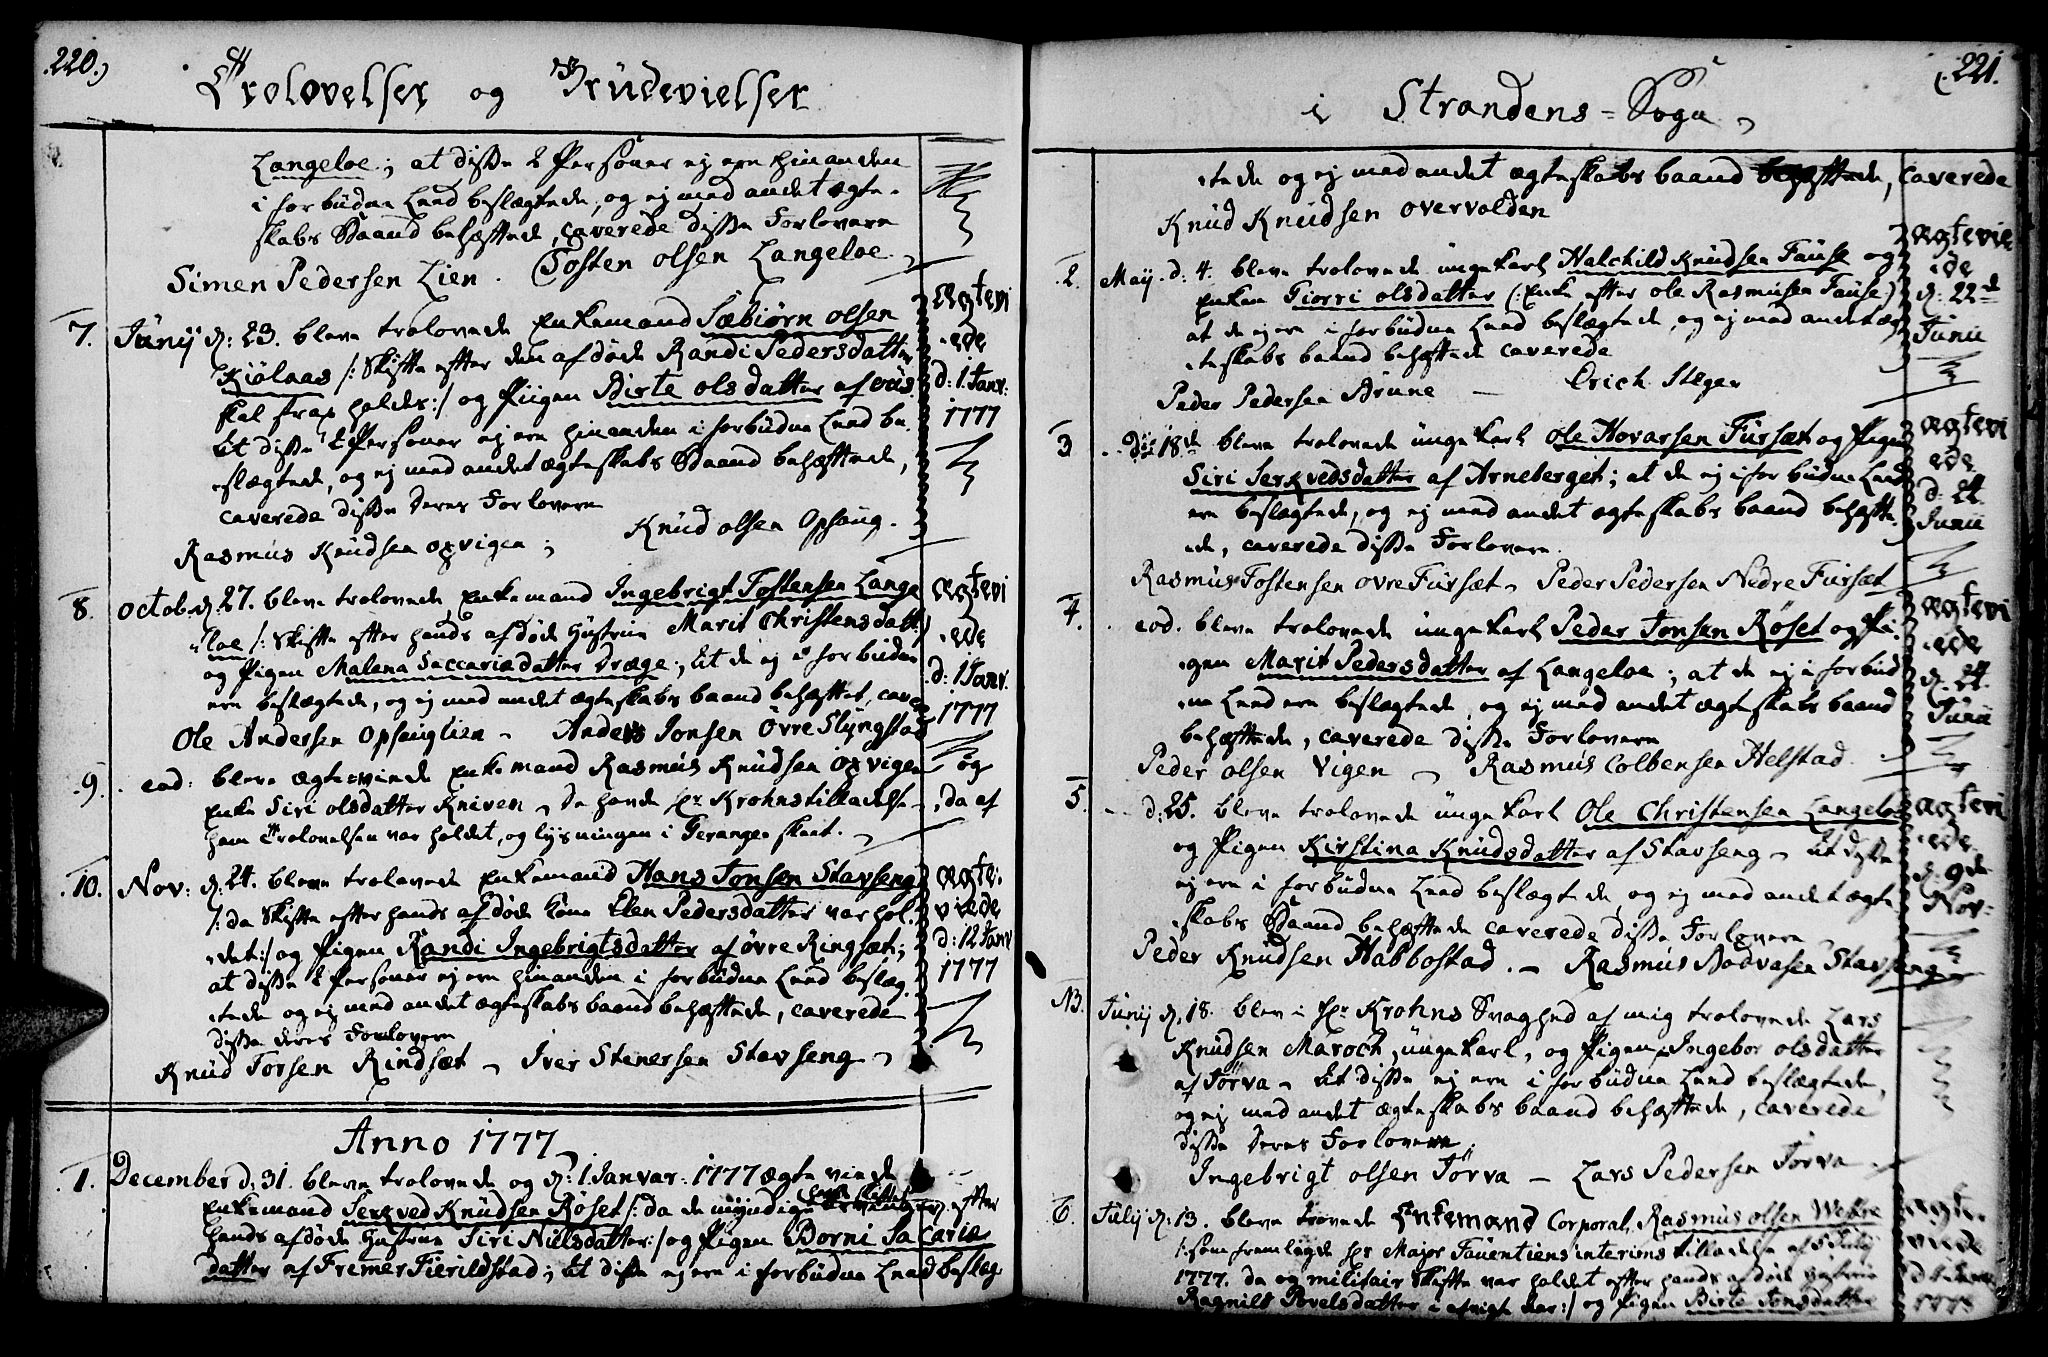 220.)
Trolovelser og Brudevielser
Langeloe; at disse 2 Personer ej ere hinanden
i forbudne Leed beslægtede, og ej med andet ægte-
skabs Baand behæftede, caverede disse Forlovere
Simen Pedersen Lien. Tosten olsen Langeloe
7. Junij d: 23. bleve trolovede Enkemand Sæbiørn olsen
Kiølaas /: Skifte efter den afdøde Randi Pedersdatter
skal strax holdes :/ og Pigen Birte olsdatter af
At disse 2 Personer ej ere hinanden i forbudne Leed be-
slægtede, og ej med andet ægteskabs Baand behæftede,
caverede disse deres Forlovere
Rasmus Knudsen oxvigen; Knud olsen Opsaug.
Ægtevi
ede
d: 1 Janv:
1777
8. octob. d. 27. bleve trolovede Enkemand Ingebrigt Tostensen Lange
loe /: Skifte efter hands afdøde Hustrue Marit Christensdatt:
og Pigen Malena Saccariædatter Dræge; At de ej i forbuden
ere beslægtede, og ej med andet ægteskabs baand behæftet, cave
Ole Andersen Opsauglien - Anders Jonsen Øvre Slyngstad
ægtevi
ede
d: 1 Janv.
1777
9. eod: bleve ægteviede Enkemand Rasmus Knudsen oxvigen og
Enke Siri olsdatter Kniven - da hande Hr Krohns tilladelse, da af
ham Trolovelsen var holdet, og lysningen i Geranger skeet.
10. Nov: d: 24. bleve trolovede Enkemand Hans Jonsen Stavseng
/: da Skifte efter hands afdøde Kone Elen Pedersdatter var hol-
det :/ og Pigen Randi Ingebrigtsdatter af øvre Ringsæt;
at disse 2 Personer ej ere hinanden i forbudne Leed beslæg
tede og ej med andet ægteskabs baand behæftede, caverede
disse deres Forlovere
Knud Torsen Rindsæt - Iver Stenersen Stavseng
ægte-
viede
d: 12 Janv
1777
Anno 1777
1. December d. 31. bleve trolovede og d: 1 Janvar: 1777 ægteviede
Enkemand Serkved Knudsen Røset /: da de myndige efter
hands afdøde Hustrue Siri Nielsdatter :/ og Pigen Borni Sacariæ
datter af Fremer Fierildstad; At disse ej ere i forbudne Leed beslæg
221.
i Strandens-Sogn
tede og ej med andet ægteskabs baand behæftede, caverede
Knud Knudsen overvolden
2. Maij d: 4. bleve trolovede ungekarl Halchild Knudsen Fause og
Enken Giorri olsdatter (: Enke efter ole Rasmusen Fause)
at de ej ere i forbudne Leed beslægtede, og ej med andet æg
teskabs baand behæftede caverede
Peder Pedersen Brune - Erich Stæger
ægtevie
de
d: 22de
Junii
3. Dii 18de bleve trolovede ungekarl Ole Hovarsen Fursæt og Pigen
Siri Serkvedsdatter af Arneberget; at de ej i forbudne Leed
ere beslægtede, og ej med andet ægteskabs baand behæfte
de, caverede disse Forlovere.
Rasmus Tostensen ovre Fursæt - Peder Pedersen Nedre Fursæt
ægtevi
ede
d: 24.
Junii
4. eod. bleve trolovede ungekarl Peder Jonsen Røset og Pi-
gen Marit Pedersdatter af Langeloe; at de ej i forbud
ne Leed ere beslægtede, og ej med andet ægteskabs baand
behæftede, caverede disse Forlovere
Peder olsen Vigen - Rasmus Colbensen Helstad
ægtevi
ede
d. 24.
Junii
5. d: 25. bleve trolovede ungekarl Ole Christensen Langeloe
og Pigen Kirstina Knudsdatter af Stavseng - At disse
ej ere i forbudne Leed beslægtede og ej med andet ægte
skabs Baand behæftede caverede disse Forlovere
Peder Knudsen Habbostad. - Rasmus Bodvarsen Stavseng
ægtevi
ede
d: 9de
Nov:
NB. Junij d. 18. blev i Hr Krohns Svaghed af mig trolovede Lars
Knudsen Maroch, ungekarl, og Pigen Ingebor olsdatter
af Torva - At disse ej ere i forbudne Leed beslægtede,
og ej med andet ægteskabs baand behæftede, caverede
disse deres Forlovere.
Ingebrigt olsen Torva - Lars Pedersen Torva
6. Julij d: 13. bleve trovede Enkemand Corporal Rasmus olsen Webre
/: som fremlagde Hr Major Tauentiens interims tilladelse af
1777. da og militair Skifte var holdet efter hands afdøde Hustrue
Ragnild Povelsdatter i afvigte Aar :/ og Pigen Birte Jonsdatter
ægte-
viede